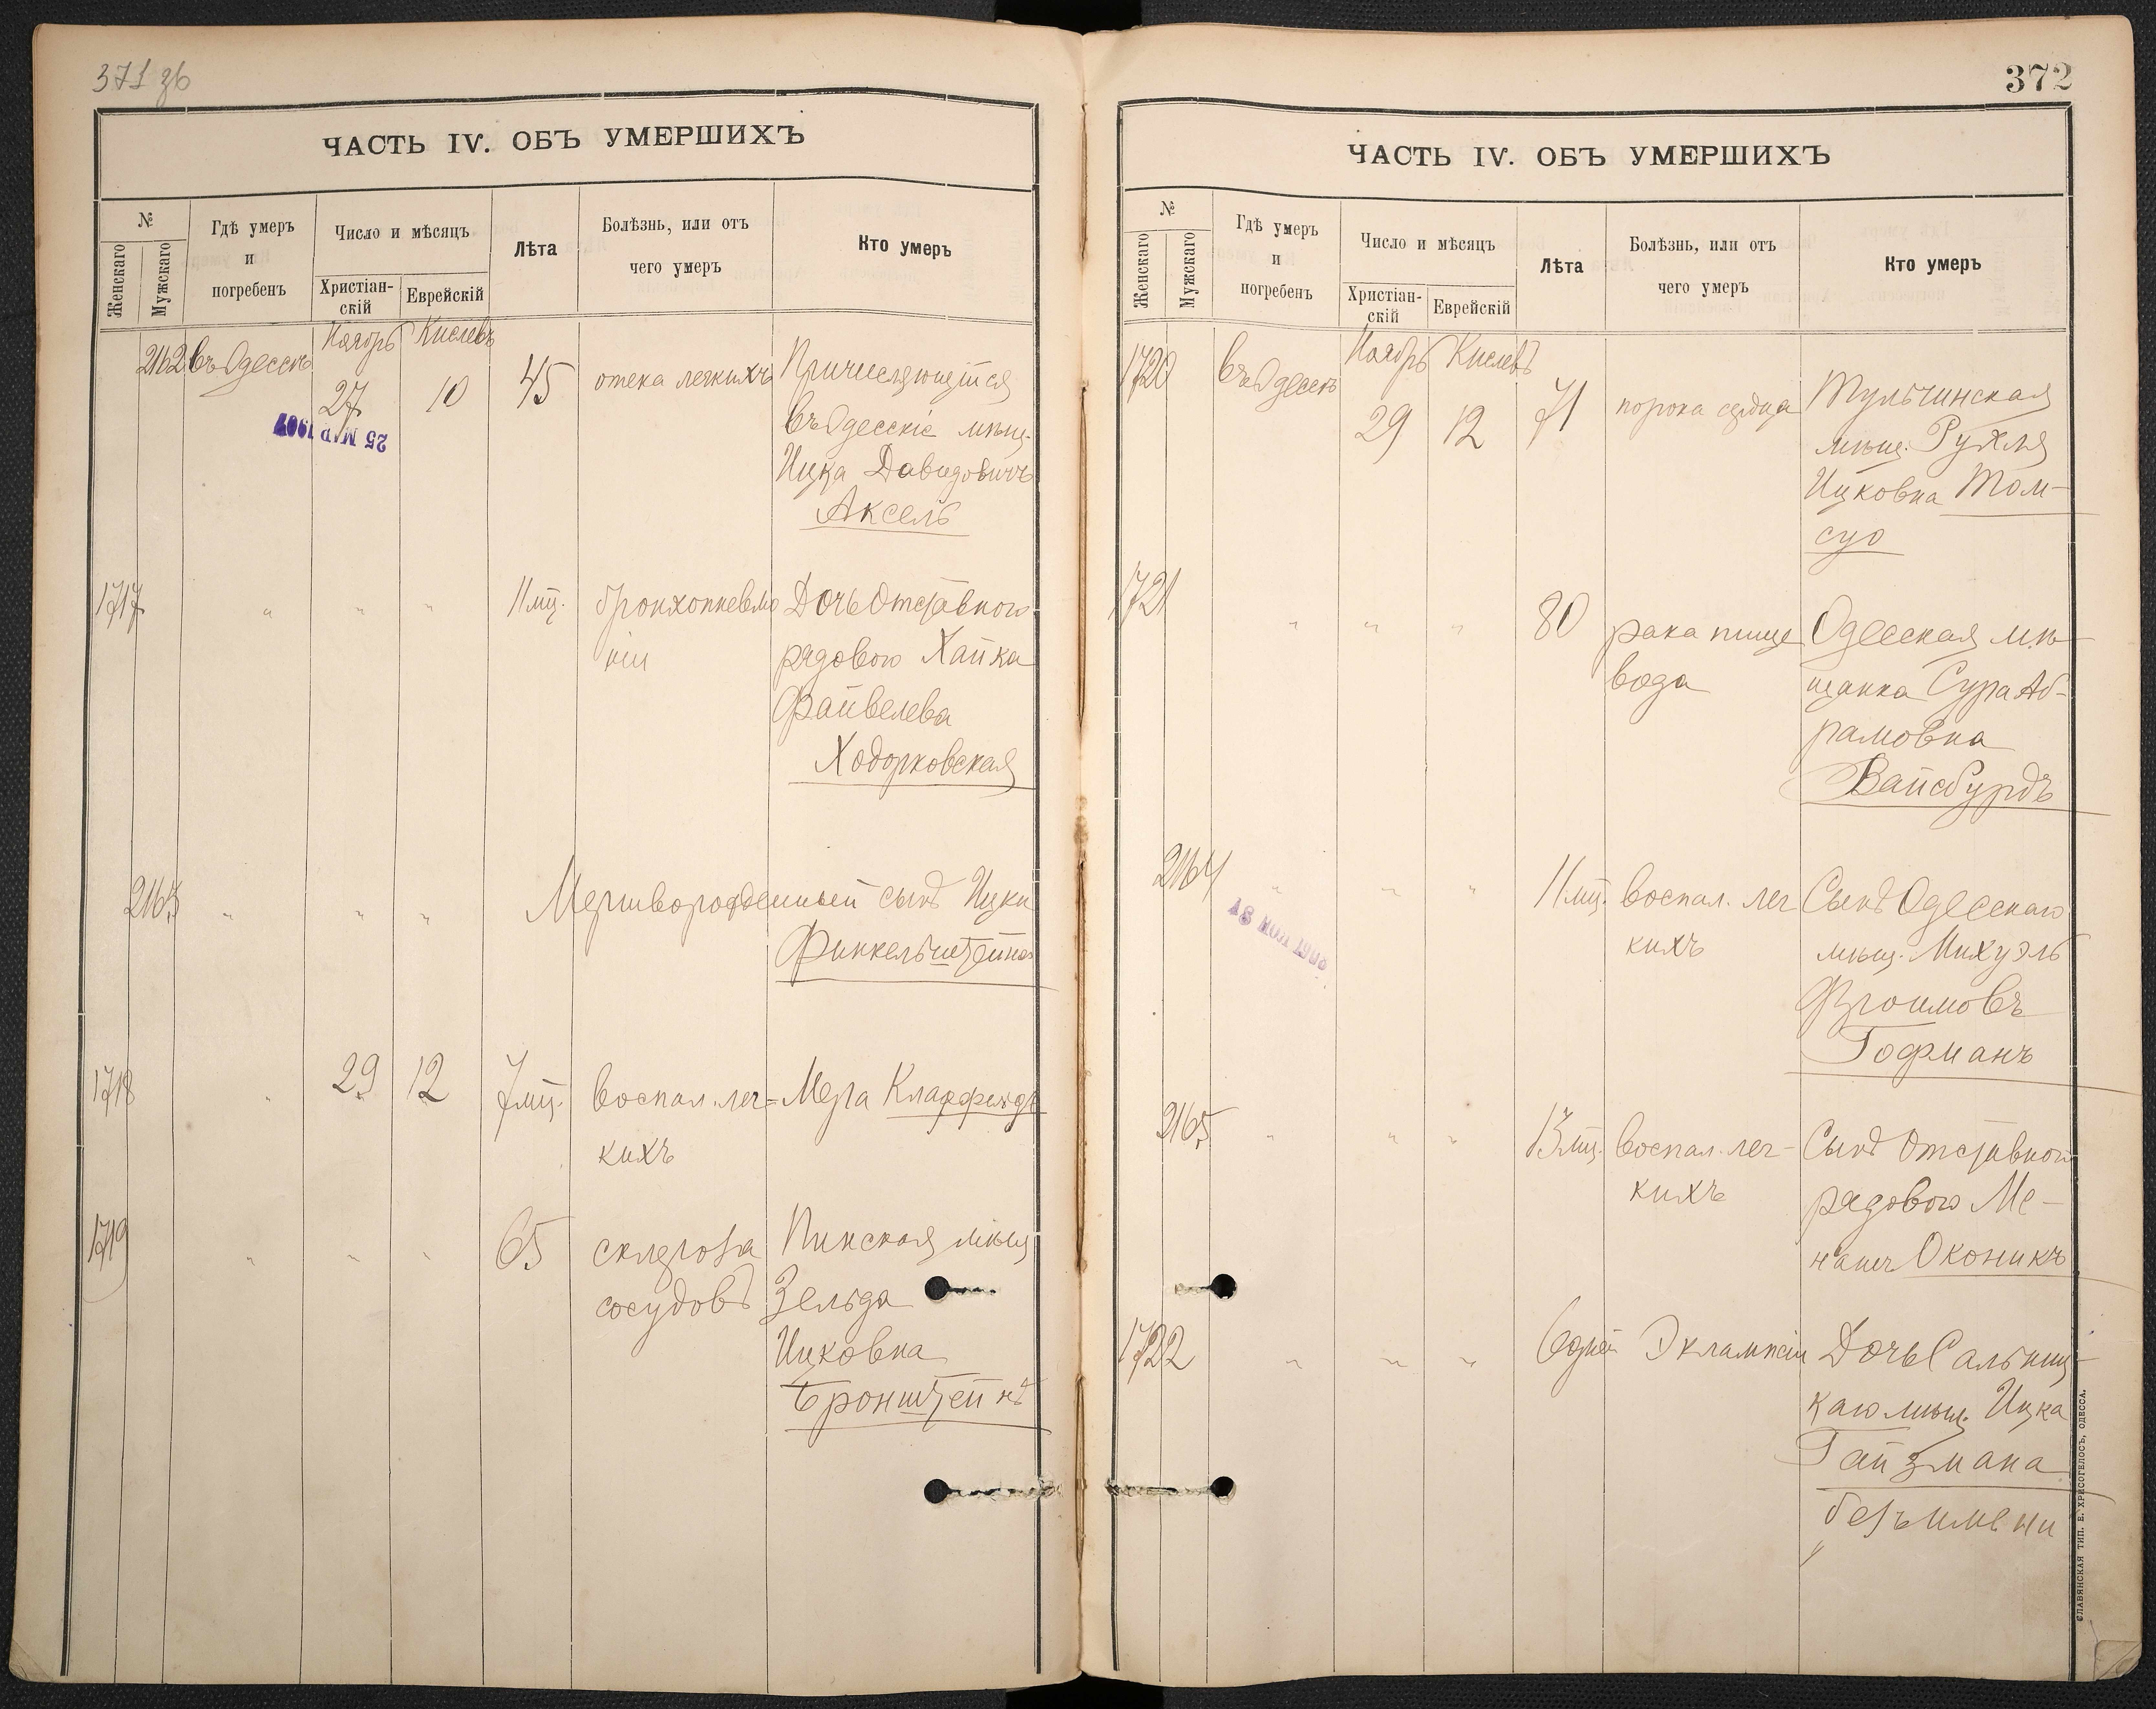 371 зв
ЧАСТЬ IV. ОБЪ УМЕРШИХЪ
№
Женскаго
Мужскаго
Гдѣ умеръ
и
погребенъ
Число и мѣсяцъ
Христіан-
скій
Еврейскій
Лѣта
Болѣзнь, или отъ
чего умеръ
Кто умеръ
2162 въ Одессѣ Ноябрь 27 Кислевъ 10 45 отека легкихъ Причисляющійся
въ Одесскіе мѣщ.
Ицка Давидовичъ
Аксель
25 МАР 1907
1717 " " " 11 мц. бронхопневмо Дочь Отставного
ніи рядового Хайка
Файвелева
Ходорковская
2163 " " " Мертворожденный сынъ Ицки
Финкельштейна
1718 " 29 12 7 мц. воспал. лег= Мера Клаффельдъ
кихъ
1719 " " " 65 склероза Пинская мѣщ
сосудовъ Зельда
Ицковна
Бронштейнъ
372
ЧАСТЬ IV. ОБЪ УМЕРШИХЪ
№
Женскаго
Мужскаго
Гдѣ умеръ
и
погребенъ
Число и мѣсяцъ
Христіан-
скій
Еврейскій
Лѣта
Болѣзнь, или отъ
чего умеръ
Кто умеръ
1720 въ Одессѣ Ноябрь 29 Кислевъ 12 71 порока сердца Тульчинская
мѣщ. Рухля
Ицковна Том-
суо
1721 " " " 80 рака пище Одесская мѣ-
вода щанка Сура Аб-
рамовна
Вайсбурдъ
2164 " " " 11 мц. воспал. лег Сынъ Одесскаго
кихъ мѣщ. Михуэль
Фроимовъ
Гофманъ
2165 " " " 13 мц. воспал. лег- Сынъ Отставного
кихъ рядового Ме-
нашъ Оконикъ
1722 " " " 6 дней Эклампсіи Дочь Сальниц-
каго мѣщ. Ицка
Гайзмана
безъ имени
СЛАВЯНСКАЯ ТИП. Е. ХРИСОГЕЛОСЪ, ОДЕССА.